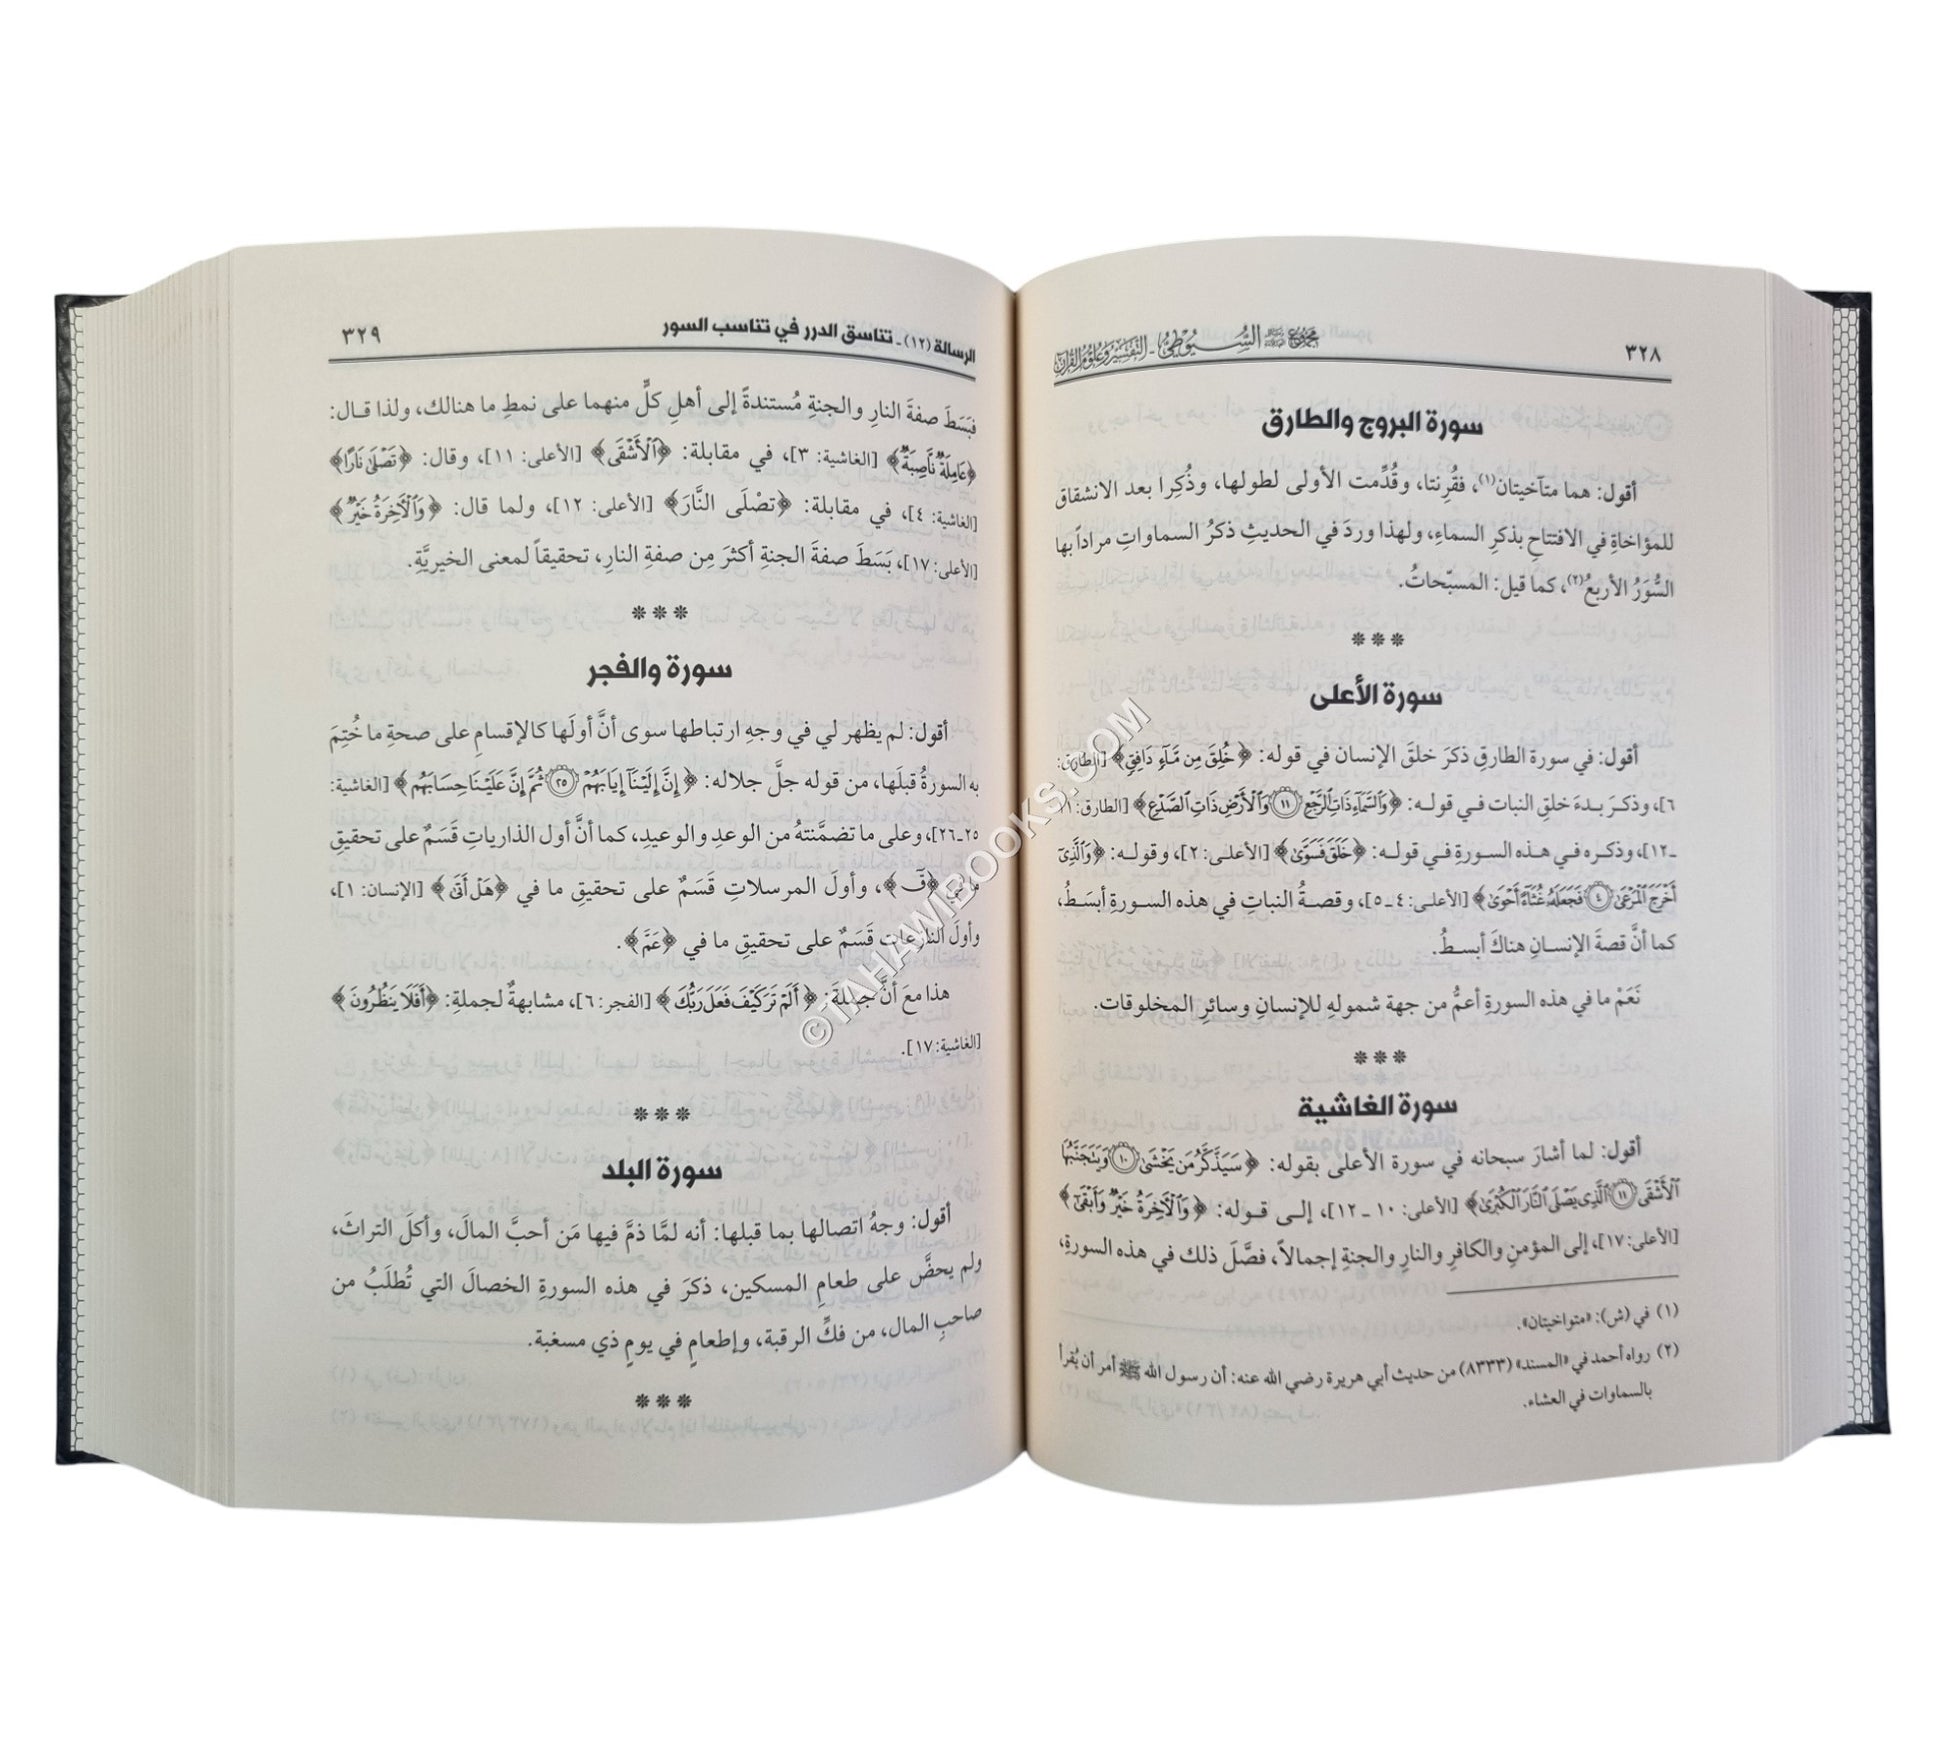 ٣٢٨
مجموع رسائل السيوطي - التفسير وعلوم القرآن
سورة البروج والطارق
أقول: هما متآخيتان(١)، فقُرِنتا، وقُدِّمت الأولى لطولها، وذُكِرا بعد الانشقاق
للمؤاخاةِ في الافتتاحِ بذكرِ السماءِ، ولهذا وردَ في الحديثِ ذكرُ السماواتِ مراداً بها
السُّوَرُ الأربعُ(٢)، كما قيل: المسبّحاتُ.
***
سورة الأعلى
أقول: في سورة الطارقِ ذكرَ خلقَ الإنسان في قوله: ﴿خُلِقَ مِن مَّآءٖ دَافِقٖ﴾ [الطارق:
٦]، وذكرَ بدءَ خلقِ النبات في قوله: ﴿وَٱلسَّمَآءِ ذَاتِ ٱلرَّجۡعِ ١١ وَٱلۡأَرۡضِ ذَاتِ ٱلصَّدۡعِ﴾ [الطارق: ١١
ـ١٢]، وذكره في هذه السورةِ في قوله: ﴿خَلَقَ فَسَوَّىٰ﴾ [الأعلى: ٢]، وقوله: ﴿وَٱلَّذِيٓ
أَخۡرَجَ ٱلۡمَرۡعَىٰ ٤ فَجَعَلَهُۥ غُثَآءً أَحۡوَىٰ﴾ [الأعلى: ٤ ـ ٥]، وقصةُ النباتِ في هذه السورةِ أبسَطُ،
كما أنَّ قصةَ الإنسانِ هناكَ أبسطُ.
نَعَمْ ما في هذه السورةِ أعمُّ من جهة شمولهِ للإنسانِ وسائرِ المخلوقات.
***
سورة الغاشية
أقول: لما أشارَ سبحانه في سورة الأعلى بقوله: ﴿سَيَذَّكَّرُ مَن يَخۡشَىٰ ١٠ وَيَتَجَنَّبُهَا
ٱلۡأَشۡقَى ١١ ٱلَّذِي يَصۡلَى ٱلنَّارَ ٱلۡكُبۡرَىٰ﴾ [الأعلى: ١٠ ـ ١٢]، إلى قوله: ﴿وَٱلۡأٓخِرَةُ خَيۡرٞ وَأَبۡقَىٰٓ﴾
[الأعلى: ١٧]، إلى المؤمنِ والكافرِ والنارِ والجنةِ إجمالاً، فصَّلَ ذلك في هذه السورةِ،
(١) في (ش): «متواخيتان».
(٢) رواه أحمد في «المسند» (٨٣٣٣) من حديث أبي هريرة رضي الله عنه: أن رسول الله ﷺ أمر أن يُقرأ
بالسماوات في العشاء.
الرسالة (١٢) ـ تناسق الدرر في تناسب السور
٣٢٩
فبَسَطَ صفةَ النارِ والجنةِ مُستندةً إلى أهلِ كلٍّ منهما على نمطِ ما هنالك، ولذا قال:
﴿عَامِلَةٞ نَّاصِبَةٞ﴾ [الغاشية: ٣]، في مقابلة: ﴿ٱلۡأَشۡقَى﴾ [الأعلى: ١١]، وقال: ﴿تَصۡلَىٰ نَارًا﴾
[الغاشية: ٤]، في مقابلة: ﴿تصْلَى النَّارَ﴾ [الأعلى: ١٢]، ولما قال: ﴿وَٱلۡأٓخِرَةُ خَيۡرٞ﴾
[الأعلى: ١٧]، بَسَطَ صفةَ الجنةِ أكثرَ مِن صفةِ النارِ، تحقيقاً لمعنى الخيريَّةِ.
***
سورة والفجر
أقول: لم يظهر لي في وجهِ ارتباطها سوى أنَّ أولَها كالإقسامِ على صحةِ ما خُتِمَ
به السورةُ قبلَها، من قوله جلَّ جلاله: ﴿إِنَّ إِلَيۡنَآ إِيَابَهُمۡ ٢٥ ثُمَّ إِنَّ عَلَيۡنَا حِسَابَهُم﴾ [الغاشية:
٢٥ـ٢٦]، وعلى ما تضمَّنتهُ من الوعدِ والوعيدِ، كما أنَّ أول الذارياتِ قَسَمٌ على تحقيقِ
ما في ﴿قٓ﴾، وأولَ المرسلاتِ قَسَمٌ على تحقيقِ ما في ﴿هَلۡ أَتَىٰ﴾ [الإنسان: ١]،
وأولَ النازعاتِ قَسَمٌ على تحقيقِ ما في ﴿عَمَّ﴾.
هذا معَ أنَّ جملةَ: ﴿أَلَمۡ تَرَ كَيۡفَ فَعَلَ رَبُّكَ﴾ [الفجر: ٦]، مشابهةٌ لجملةِ: ﴿أَفَلَا يَنظُرُونَ﴾
[الغاشية: ١٧].
***
سورة البلد
أقول: وجهُ اتصالها بما قبلها: أنه لمَّا ذمَّ فيها مَن أحبَّ المالَ، وأكلَ التراثَ،
ولم يحضَّ على طعامِ المسكين، ذكرَ في هذه السورةِ الخصالَ التي تُطلَبُ من
صاحبِ المال، من فكِّ الرقبة، وإطعامٍ في يومٍ ذي مسغبة.
***
©TAHAMBOOKS.COM